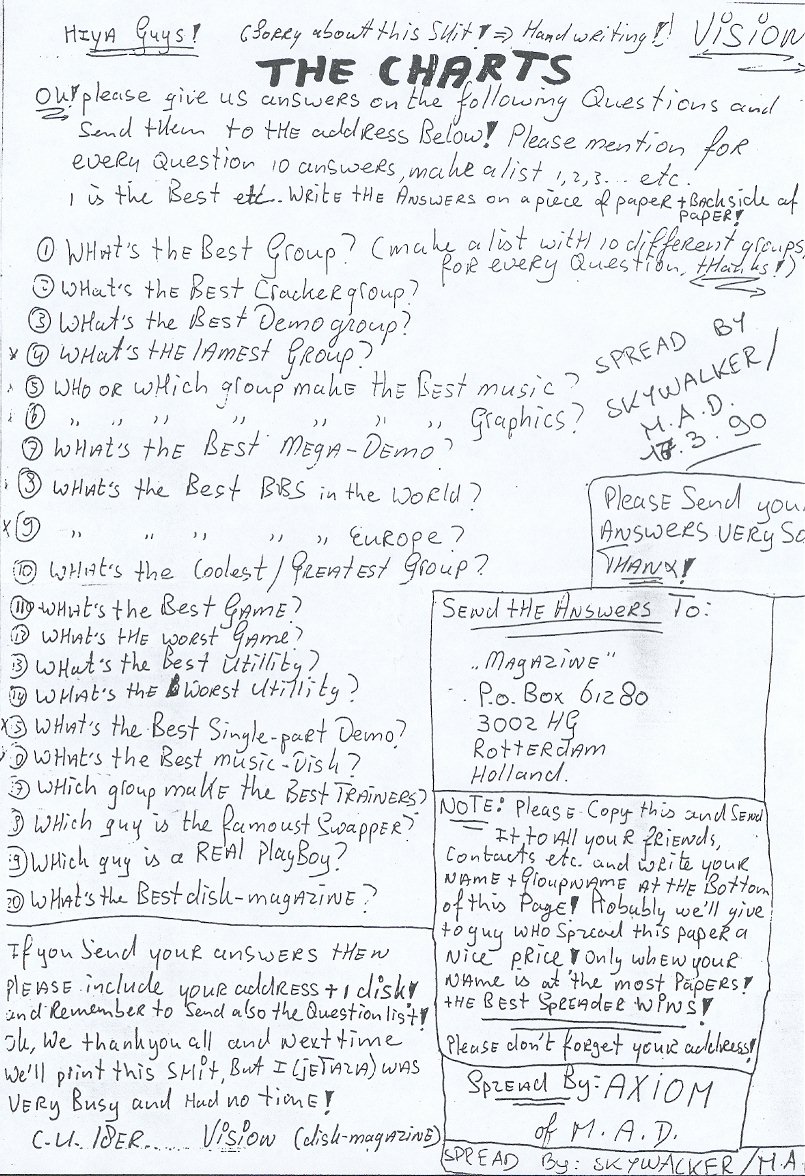 HIYA Guys! (Sorry about this SHIT! => Handwriting!!) VISION
THE CHARTS
OK! please give us answers on the following Questions and
Send them to the address Below! Please mention for
every Question 10 answers, make a list 1, 2, 3... etc.
1 is the Best etc. Write the Answers on a piece of paper + Backside of
paper!
① What's the Best Group? (make a list with 10 different groups,
for every Question, thanks!)
② What's the Best Cracker group?
③ What's the Best Demo group?
x ④ What's the lamest Group?
⑤ Who or which group make the Best music?
⑥ ,, ,, ,, ,, ,, ,, ,, Graphics?
⑦ What's the Best Mega-Demo?
SPREAD BY
SKYWALKER/
M.A.D.
3.90
⑧ What's the Best BBS in the World?
x ⑨ ,, ,, ,, ,, ,, Europe?
⑩ What's the Coolest/Greatest Group?
Please Send you
Answers very So
THANX!
⑪ What's the Best Game?
⑫ What's the worst Game?
⑬ What's the Best Utillity?
⑭ What's the Worst Utillity?
x ⑮ What's the Best Single-part Demo?
⑯ What's the Best music-Dish?
⑰ Which group make the Best Trainers?
⑱ Which guy is the famoust Swapper?
⑲ Which guy is a REAL PlayBoy?
⑳ What's the Best disk-magazine?
Send the Answers To:
,,Magazine"
P.O. Box 61280
3002 HG
Rotterdam
Holland.
NOTE: Please Copy this and Send
It to All your friends,
Contacts etc. and write your
Name + Groupname at the Bottom
of this Page! Probably we'll give
to guy who spread this paper a
Nice price! Only when your
Name is at the most Papers!
the Best Spreader wins!
Please don't forget your address!
If you Send your answers then
Please include your address + 1 disk!
and Remember to Send also the Question list!
Ok, We thank you all and next time
We'll print this Shit, But I (JETAZIA) was
very Busy and Had no time!
C.U. l8er..... Vision (disk-magazine)
Spread By: AXIOM
of M.A.D.
SPREAD By: SKYWALKER/M.A.